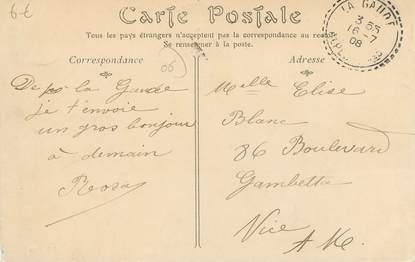 6€
Carte Postale
Tous les pays étrangers n'acceptent pas la correspondance au
Se renseigner à la poste.
LA GAUDE
3 55
16-7
08
Correspondance
Adresse
06
De la Gaude
je t'envoie
un gros bonjour
à demain
Rosa
Melle Elise
Blanc
86 Boulevard
Gambetta
Nice
A M.